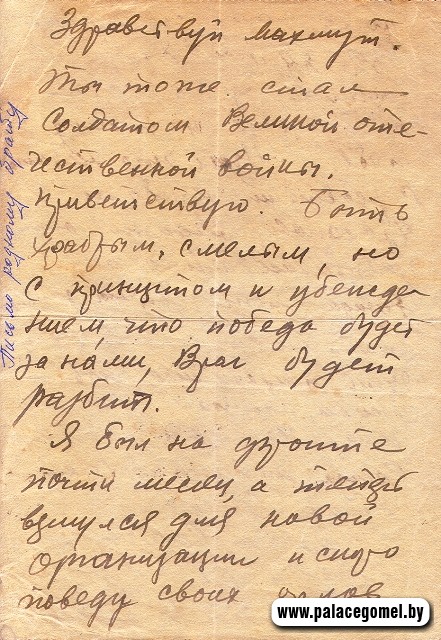 Здравствуй Махмут.
Ты тоже стал
солдатом Великой оте-
чественной войны.
Приветствую. Быть
храбрым, смелым, но
с принцитом и убежде
нием, что победа будет
за нами, Враг будет
разбит.
Я был на фронте
почти месяц, а теперь
вернулся для новой
организации и скоро
поведу своих орлов
Письмо родному брату
www.palacegomel.by